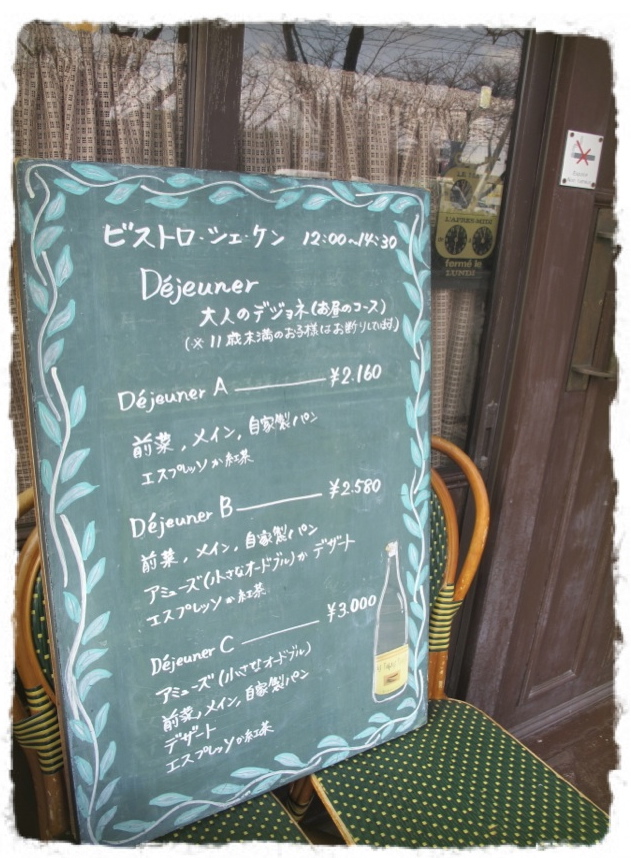 ビストロ・シェ・ケン 12:00~14:30
Déjeuner
大人のデジョネ(お昼のコース)
(※ 11歳未満のお子様はお断りしています)
Déjeuner A ¥2.160
前菜, メイン, 自家製パン
エスプレッソか紅茶
Déjeuner B ¥2.580
前菜, メイン, 自家製パン
アミューズ(小さなオードブル)か デザート
エスプレッソか紅茶
Déjeuner C ¥3.000
アミューズ(小さなオードブル)
前菜, メイン, 自家製パン
デザート
エスプレッソか紅茶
L'APRES-MIDI
fermé le
LUNDI